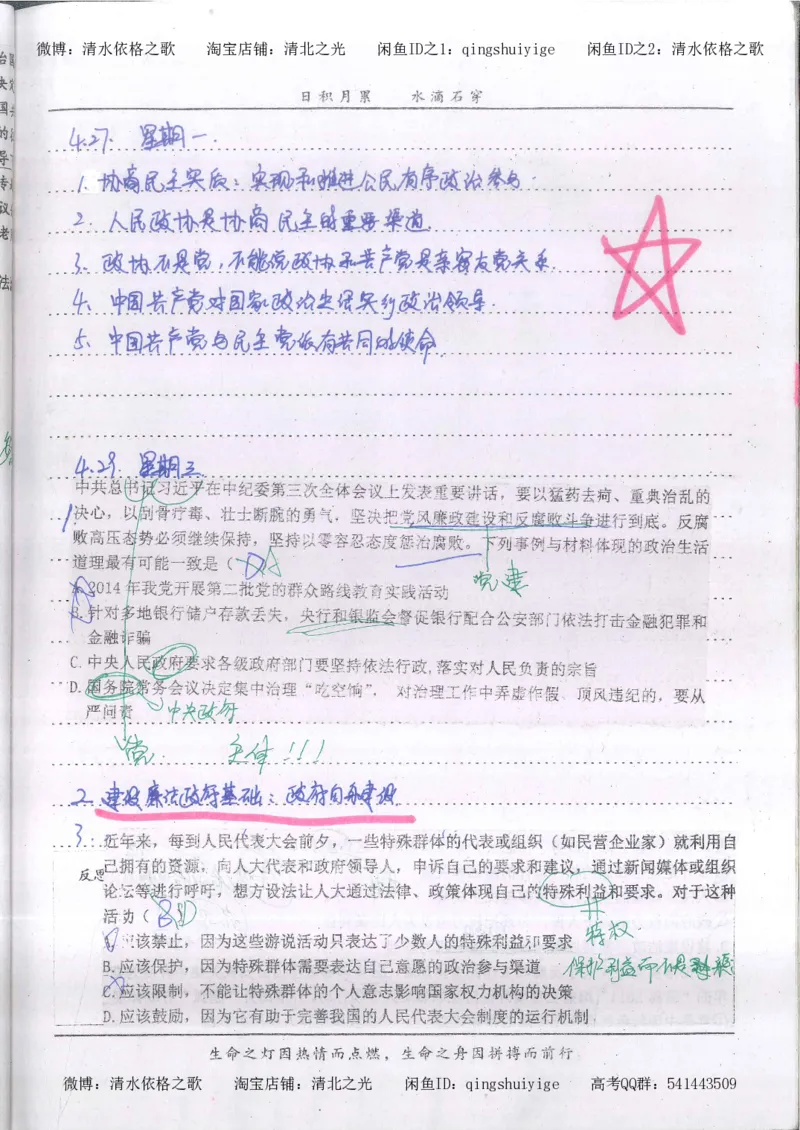 微博：清水依格之歌 淘宝店铺：清北之光 闲鱼ID之1：qingshuiyige 闲鱼ID之2：清水依格之歌
日积月累 水滴石穿
4.27. 星期一.
1. 协商民主实质：实现和推进公民有序政治参与.
2. 人民政协是协商民主的重要渠道.
3. 政协不是党，不能说政协和共产党是亲密友党关系.
4. 中国共产党对国家政治生活实行政治领导.
5. 中国共产党与民主党派有共同的使命.
4.29. 星期三.
中共总书记习近平在中纪委第三次全体会议上发表重要讲话，要以猛药去疴、重典治乱的
1 决心，以刮骨疗毒、壮士断腕的勇气，坚决把党风廉政建设和反腐败斗争进行到底。反腐
败高压态势必须继续保持，坚持以零容忍态度惩治腐败。下列事例与材料体现的政治生活
道理最有可能一致是（ A
党建
A.2014年我党开展第二批党的群众路线教育实践活动
B.针对多地银行储户存款丢失，央行和银监会督促银行配合公安部门依法打击金融犯罪和
金融诈骗
C.中央人民政府要求各级政府部门要坚持依法行政,落实对人民负责的宗旨
D.国务院常务会议决定集中治理“吃空饷”， 对治理工作中弄虚作假、顶风违纪的，要从
严问责 中央政府
党. 主体!!!
2. 建设廉洁政府基础：政府自身建设
3. 近年来，每到人民代表大会前夕，一些特殊群体的代表或组织（如民营企业家）就利用自
反思 己拥有的资源，向人大代表和政府领导人，申诉自己的要求和建议，通过新闻媒体或组织
论坛等进行呼吁，想方设法让人大通过法律、政策体现自己的特殊利益和要求。对于这种
活动（ B D
特权
应该禁止，因为这些游说活动只表达了少数人的特殊利益和要求
B.应该保护，因为特殊群体需要表达自己意愿的政治参与渠道 保护利益而不是
C.应该限制，不能让特殊群体的个人意志影响国家权力机构的决策
D.应该鼓励，因为它有助于完善我国的人民代表大会制度的运行机制
生命之灯因热情而点燃，生命之舟因拼搏而前行
微博：清水依格之歌 淘宝店铺：清北之光 闲鱼ID：qingshuiyige 高考QQ群：541443509